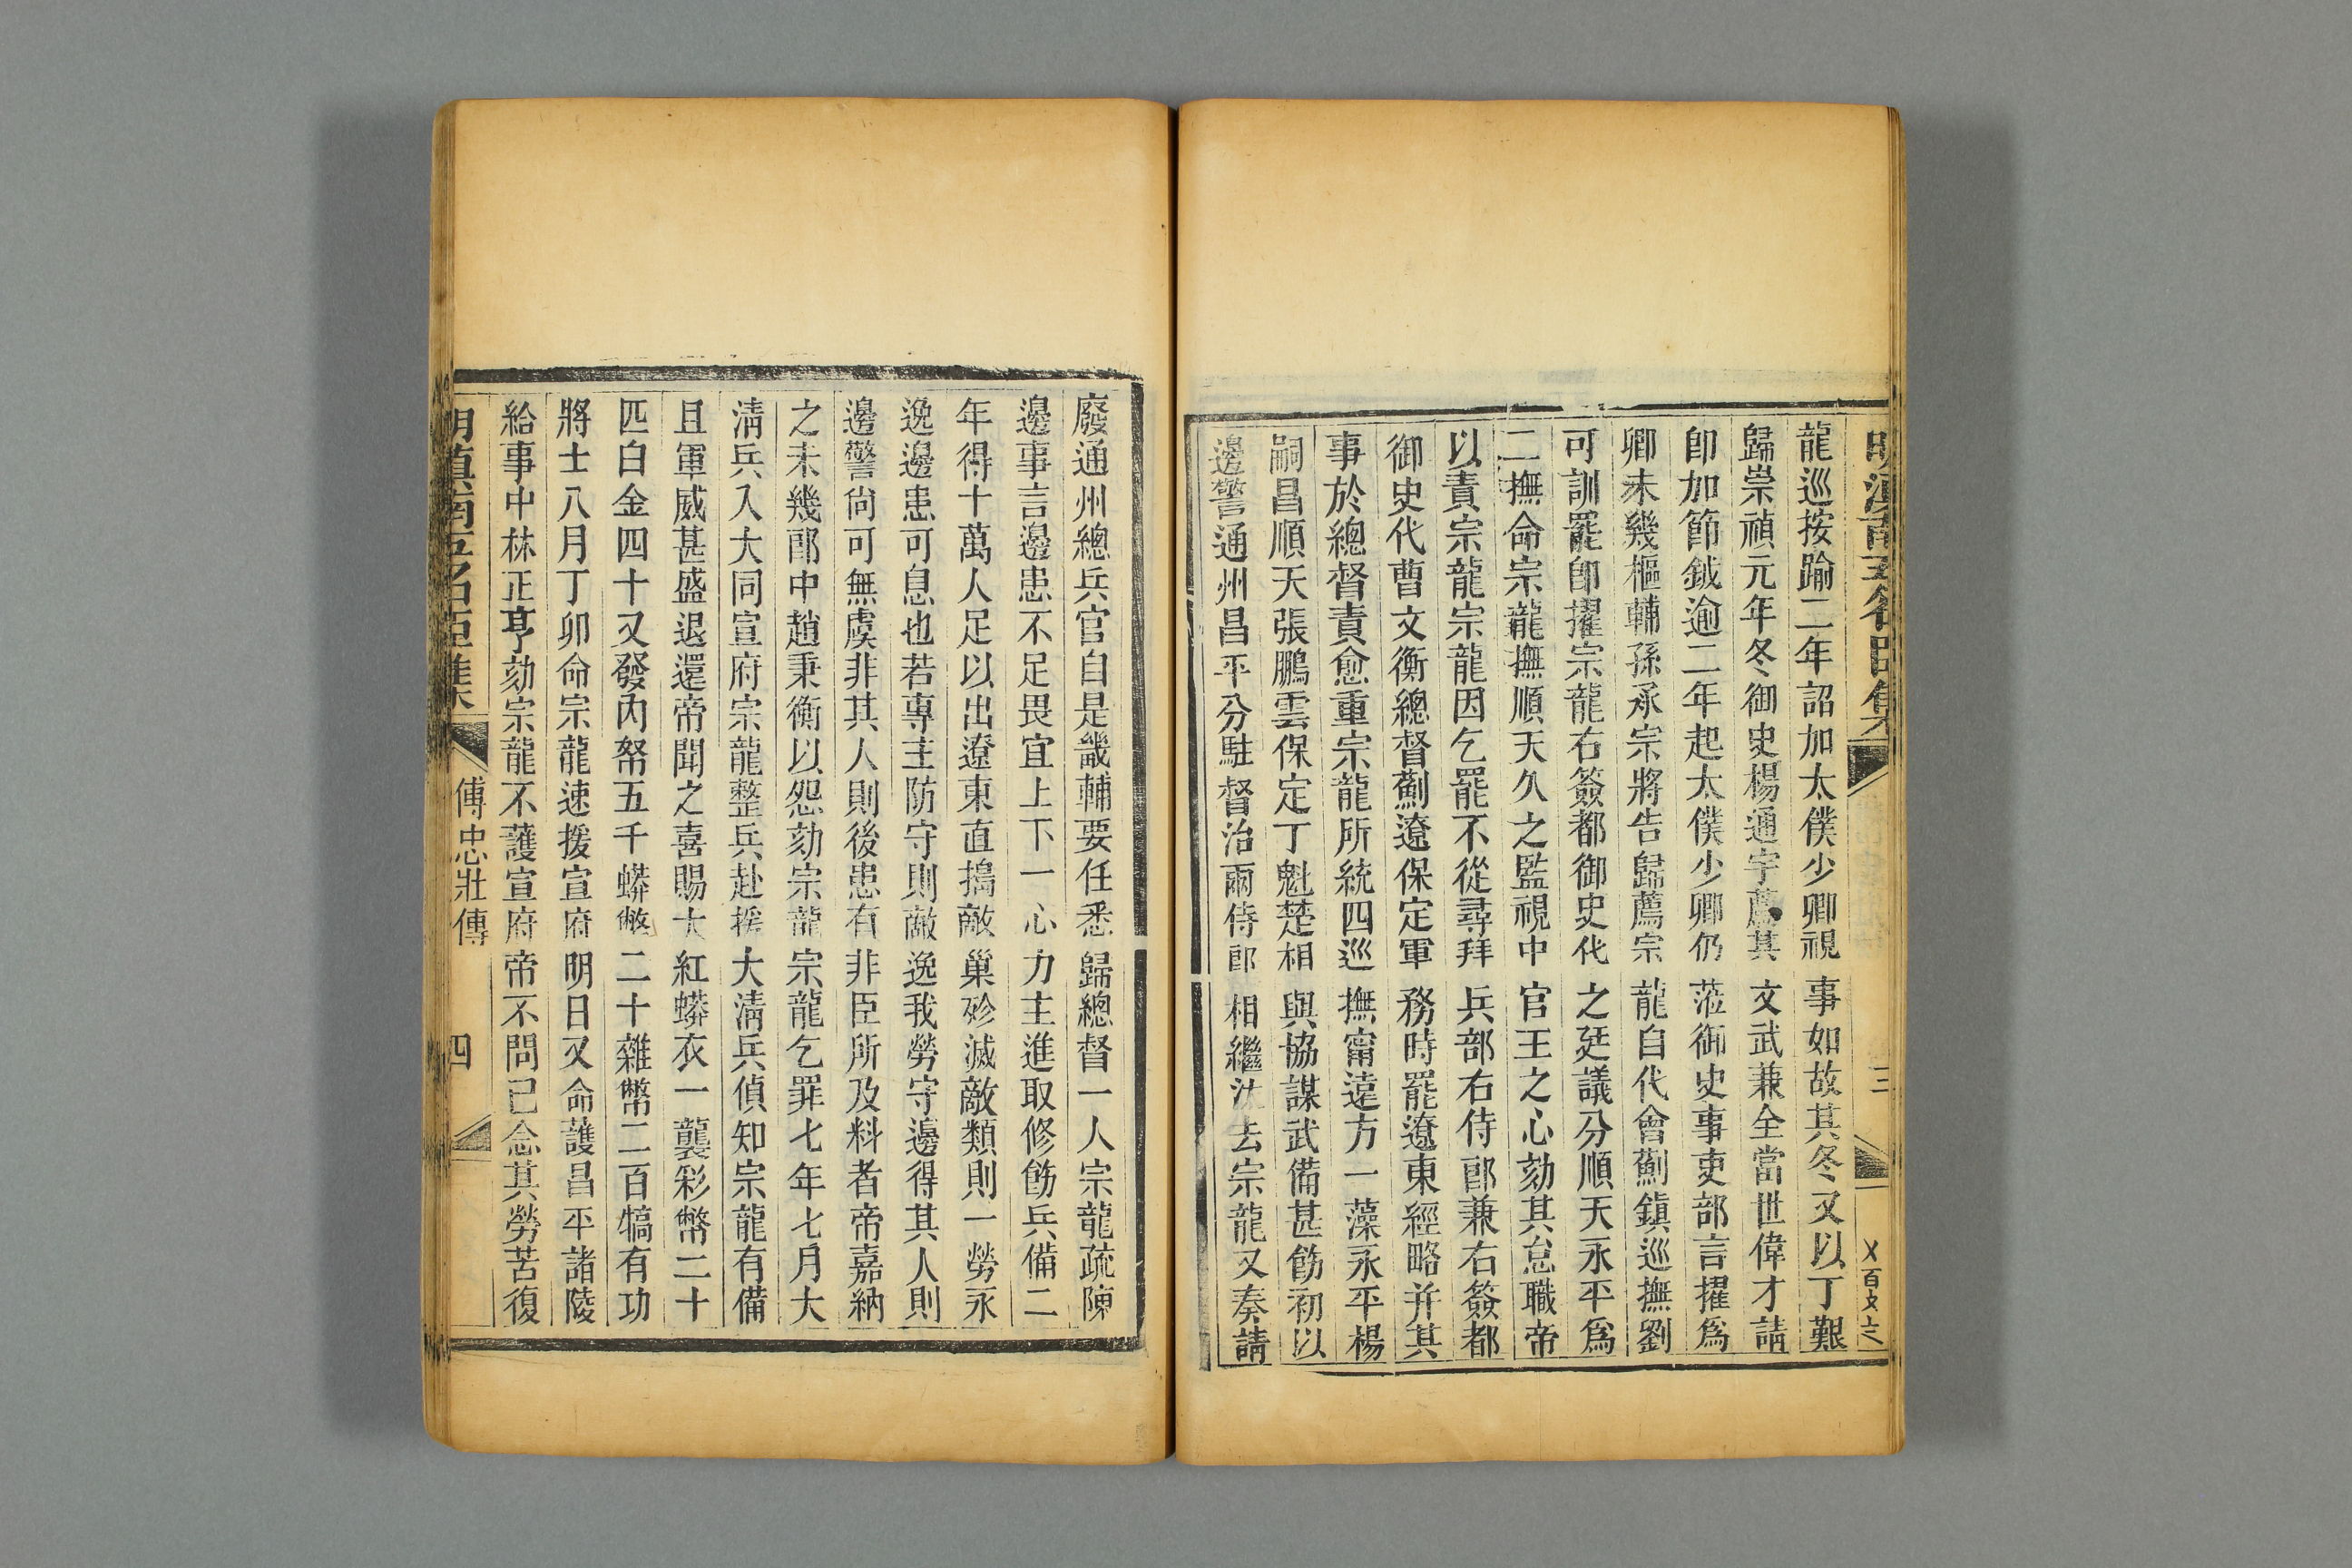 龍巡按踰二年詔加太僕少卿視事如故其冬又以丁艱
歸崇禎元年冬御史楊通宇薦其文武兼全當世偉才請
卽加節鉞逾二年起太僕少卿仍蒞御史事吏部言擢爲
卿未幾樞輔孫承宗將告歸薦宗龍自代會薊鎮巡撫劉
可訓罷卽擢宗龍右簽都御史代之廷議分順天永平爲
二撫命宗龍撫順天久之監視中官王之心劾其怠職帝
以責宗龍宗龍因乞罷不從尋拜兵部右侍郎兼右簽都
御史代曹文衡總督薊遼保定軍務時罷遼東經略并其
事於總督責愈重宗龍所統四巡撫甯遠方一藻永平楊
嗣昌順天張鵬雲保定丁魁楚相與協謀武備甚飭初以
邊警通州昌平分駐督治兩侍郎相繼沈去宗龍又奏請
廢通州總兵官自是畿輔要任悉歸總督一人宗龍疏陳
邊事言邊患不足畏宜上下一心力主進取修飭兵備二
年得十萬人足以出遼東直搗敵巢殄滅敵類則一勞永
逸邊患可息也若專主防守則敵逸我勞守邊得其人則
邊警尙可無虞非其人則後患有非臣所及料者帝嘉納
之未幾郎中趙秉衡以怨劾宗龍宗龍乞罪七年七月大
淸兵入大同宣府宗龍整兵赴援大淸兵偵知宗龍有備
且軍威甚盛退還帝聞之喜賜大紅蟒衣一襲彩幣二十
匹白金四十又發內帑五千蟒幣二十雜幣二百犒有功
將士八月丁卯命宗龍速援宣府明日又命護昌平諸陵
給事中林正亨劾宗龍不護宣府帝不問已念其勞苦復
明滇南五名臣集
傅忠壯傳
四